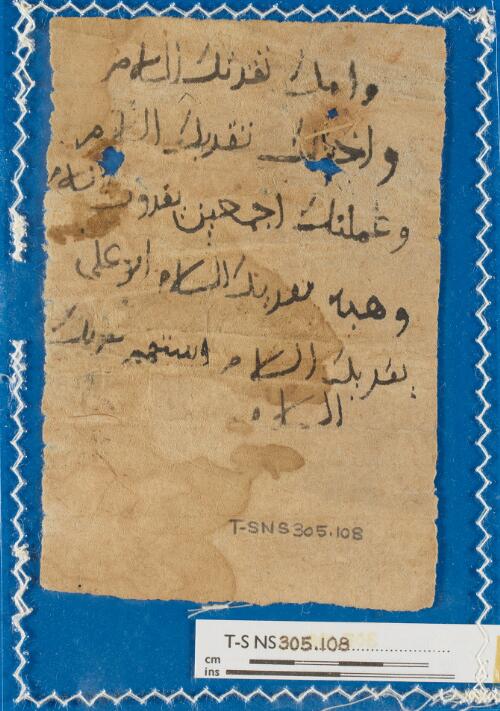 وامك تقدئك السلام
واختك تقدئك السلام
وعملتك اجمعين يقروك
وهبه تقديك السلام ابو على
يقديك السلام
السلام
T-S NS 305.108
T-S NS 305.108
cm
ins